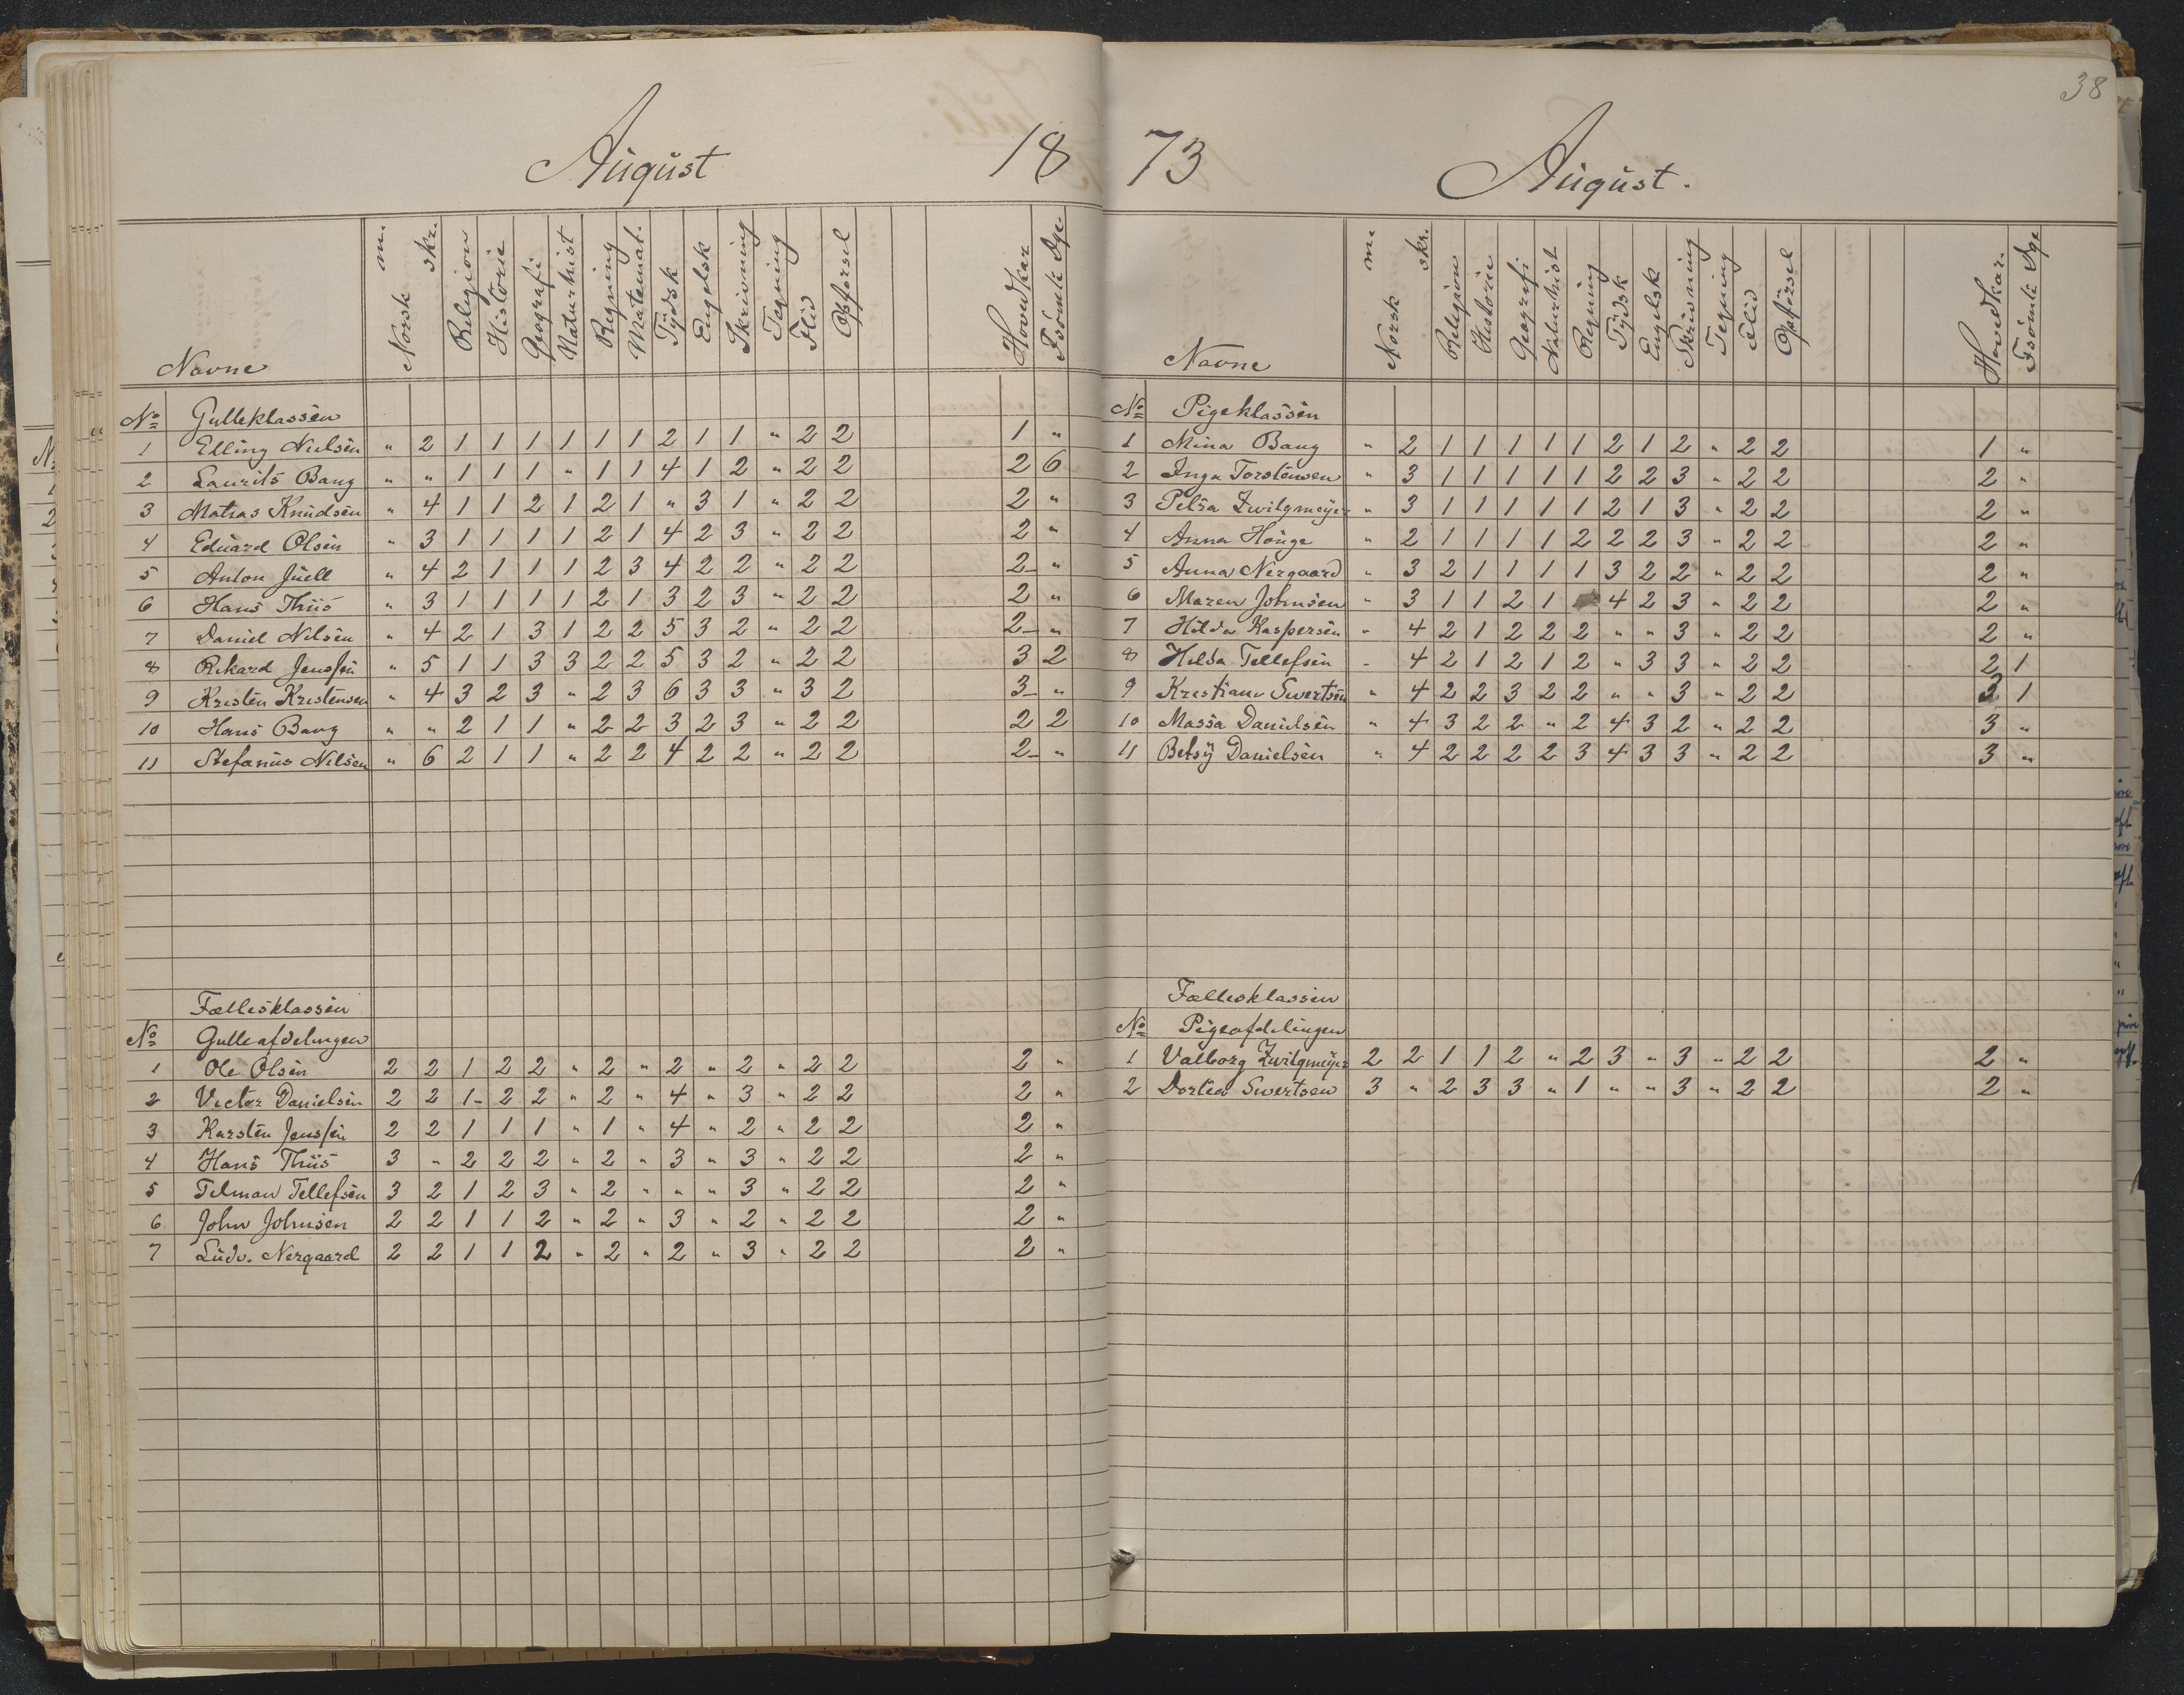 August 18
Navne Norsk m. skr. Religion Historie Geografi Naturhist Regning Matemat. Tydsk Engelsk Skrivning Tegning Flid Opførsel Hovedkar Fsömte Dge
No Gutteklassen
1 Elling Nielsen " 2 1 1 1 1 1 1 2 1 1 " 2 2 1 "
2 Laurits Bang " " 1 1 1 " 1 1 4 1 2 " 2 2 2 6
3 Matias Knudsen " 4 1 1 2 1 2 1 " 3 1 " 2 2 2 "
4 Eduard Olsen " 3 1 1 1 1 2 1 4 2 3 " 2 2 2 "
5 Anton Juell " 4 2 1 1 1 2 3 4 2 2 " 2 2 2- "
6 Hans Thiis " 3 1 1 1 1 2 1 3 2 3 " 2 2 2 "
7 Daniel Nilsen " 4 2 1 3 1 2 2 5 3 2 " 2 2 2- "
8 Rikard Jenssen " 5 1 1 3 3 2 2 5 3 2 " 2 2 3 2
9 Kristen Kristensen " 4 3 2 3 " 2 3 6 3 3 " 3 2 3- "
10 Hans Bang " " 2 1 1 " 2 2 3 2 3 " 2 2 2 2
11 Stefanus Nilsen " 6 2 1 1 " 2 2 4 2 2 " 2 2 2- "
Fællesklassen
No Gutteafdelingen
1 Ole Olsen 2 2 1 2 2 " 2 " 2 " 2 " 2 2 2 "
2 Victor Danielsen 2 2 1- 2 2 " 2 " 4 " 3 " 2 2 2 "
3 Karsten Jenssen 2 2 1 1 1 " 1 " 4 " 2 " 2 2 2 "
4 Hans Thiis 3 " 2 2 2 " 2 " 3 " 3 " 2 2 2 "
5 Telman Tellefsen 3 2 1 2 3 " 2 " " " 3 " 2 2 2 "
6 John Johnsen 2 2 1 1 2 " 2 " 3 " 2 " 2 2 2 "
7 Ludv. Nergaard 2 2 1 1 2 " 2 " 2 " 3 " 2 2 2 "
38
73 August.
Navne Norsk m. skr. Religion Historie Geografi Naturhist Regning Tydsk Engelsk Skrivning Tegning Flid Opførsel Hovedkar. Fsömte Dge
No Pigeklassen
1 Mina Bang " 2 1 1 1 1 1 2 1 2 " 2 2 1 "
2 Inga Torstensen " 3 1 1 1 1 1 2 2 3 " 2 2 2 "
3 Petra Zwilgmeyer " 3 1 1 1 1 1 2 1 3 " 2 2 2 "
4 Anna Houge " 2 1 1 1 1 2 2 2 3 " 2 2 2 "
5 Anna Nergaard " 3 2 1 1 1 1 3 2 2 " 2 2 2 "
6 Maren Johnsen " 3 1 1 2 1 4 2 3 " 2 2 2 "
7 Hilda Kaspersen " 4 2 1 2 2 2 " " 3 " 2 2 2 "
8 Hilda Tellefsen " 4 2 1 2 1 2 " 3 3 " 2 2 2 1
9 Kristiane Swertsen " 4 2 2 3 2 2 " " 3 " 2 2 1
10 Massa Danielsen " 4 3 2 2 " 2 4 3 2 " 2 2 3 "
11 Betsy Danielsen " 4 2 2 2 2 3 4 3 3 " 2 2 3 "
Fællesklassen
No Pigeafdelingen
1 Valborg Zwilgmeyer 2 2 1 1 2 " 2 3 " 3 " 2 2 2 "
2 Dortea Swertsen 3 " 2 3 3 " 1 " " 3 " 2 2 2 "